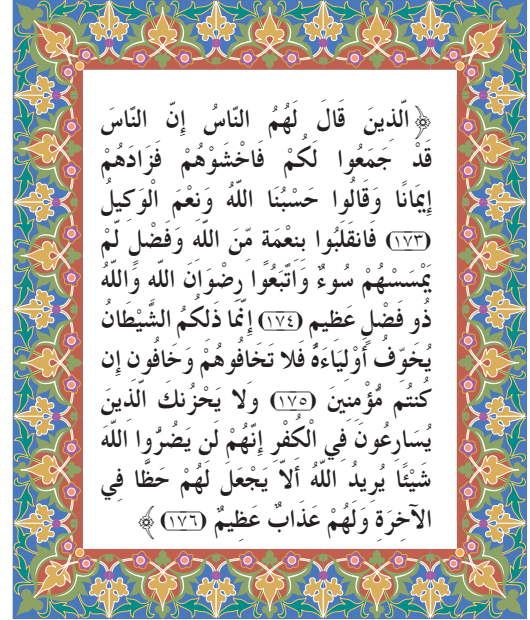 ﴿ الّذينَ قَالَ لَهُمُ النّاسُ إِنّ النّاسَ
قَدْ جَمَعُوا لَكُمْ فَاخْشَوْهُمْ فَزَادَهُمْ
إِيمَانًا وَقَالُوا حَسْبُنَا اللّهُ وَنعْمَ الْوَكيلُ
(١٧٣) فَانقَلَبُوا بنعْمَة مّنَ اللّه وَفَضْل لّمْ
يَمْسَسْهُمْ سُوءٌ وَاتّبَعُوا رضْوَانَ اللّه وَاللّهُ
ذُو فَضْلٍ عَظيمٍ (١٧٤) إِنَّمَا ذَلكُمُ الشّيْطَانُ
يُخَوّفُ أَوْليَاءَهُ فَلا تَخَافُوهُمْ وَخَافُون إِن
كُنتُم مُّؤْمنينَ (١٧٥) وَلا يَحْزُنكَ الّذينَ
يُسَارعُونَ في الْكُفْر إِنّهُمْ لَن يَضُرُّوا اللّهَ
شَيْئًا يُريدُ اللّهُ أَلاّ يَجْعَلَ لَهُمْ حَظًّا في
الآخرَة وَلَهُمْ عَذَابٌ عَظيمٌ (١٧٦) ﴾